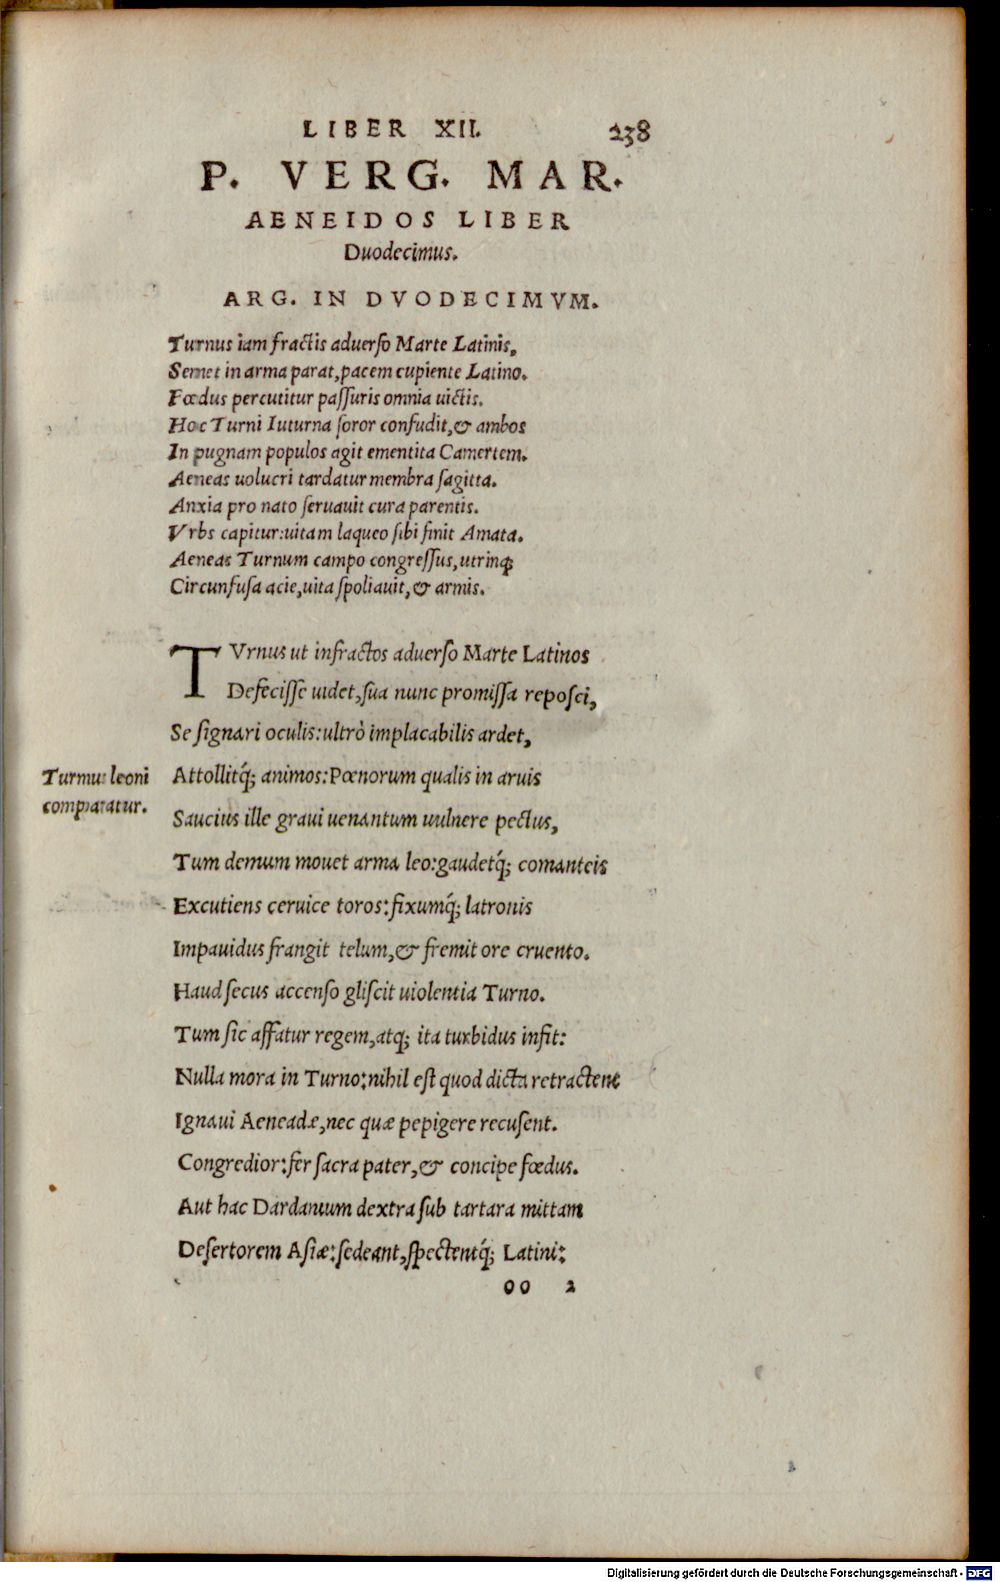 LIBER XII. 238
P. VERG. MAR.
AENEIDOS LIBER
Duodecimus.
ARG. IN DVODECIMVM.
Turnus iam fractis aduerſo Marte Latinis,
Semet in arma parat, pacem cupiente Latino.
Fœdus percutitur paſſuris omnia uictis.
Hoc Turni Iuturna ſoror confudit, & ambos
In pugnam populos agit ementita Camertem.
Aeneas uolucri tardatur membra ſagitta.
Anxia pro nato ſeruauit cura parentis.
Vrbs capitur: uitam laqueo ſibi finit Amata.
Aeneas Turnum campo congreſſus, utrinq;
Circunfuſa acie, uita ſpoliauit, & armis.
TVrnus ut infractos aduerſo Marte Latinos
Defeciſſe uidet, ſua nunc promiſſa repoſci,
Se ſignari oculis: ultrò implacabilis ardet,
Turnus leoni
comparatur.
Attollitq́; animos: Pœnorum qualis in aruis
Saucius ille graui uenantum uulnere pectus,
Tum demum mouet arma leo: gaudetq́; comanteis
Excutiens ceruice toros: fixumq́; latronis
Impauidus frangit telum, & fremit ore cruento.
Haud ſecus accenſo gliſcit uiolentia Turno.
Tum ſic affatur regem, atq; ita turbidus infit:
Nulla mora in Turno: nihil eſt quod dicta retractent
Ignaui Aeneadæ, nec quæ pepigere recuſent.
Congredior: fer ſacra pater, & concipe fœdus.
Aut hac Dardanium dextra ſub tartara mittam
Deſertorem Aſiæ: ſedeant, ſpectentq́; Latini:
oo 2
Digitalisierung gefördert durch die Deutsche Forschungsgemeinschaft - DFG